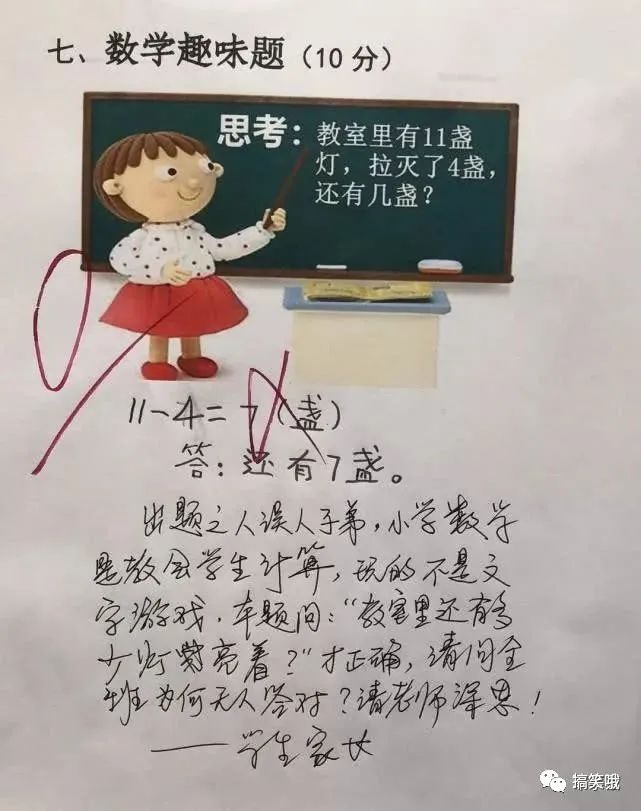 七、数学趣味题（10分）
思考：教室里有11盏
灯，拉灭了4盏，
还有几盏？
11-4=7(盏)
答：还有7盏。
出题之人误人子弟，小学数学
是教会学生计算，玩的不是文
字游戏．本题问：“教室里还有多
少灯常亮着？”才正确，请问全
班为何无人答对？请老师深思！
——学生家长
搞笑哦